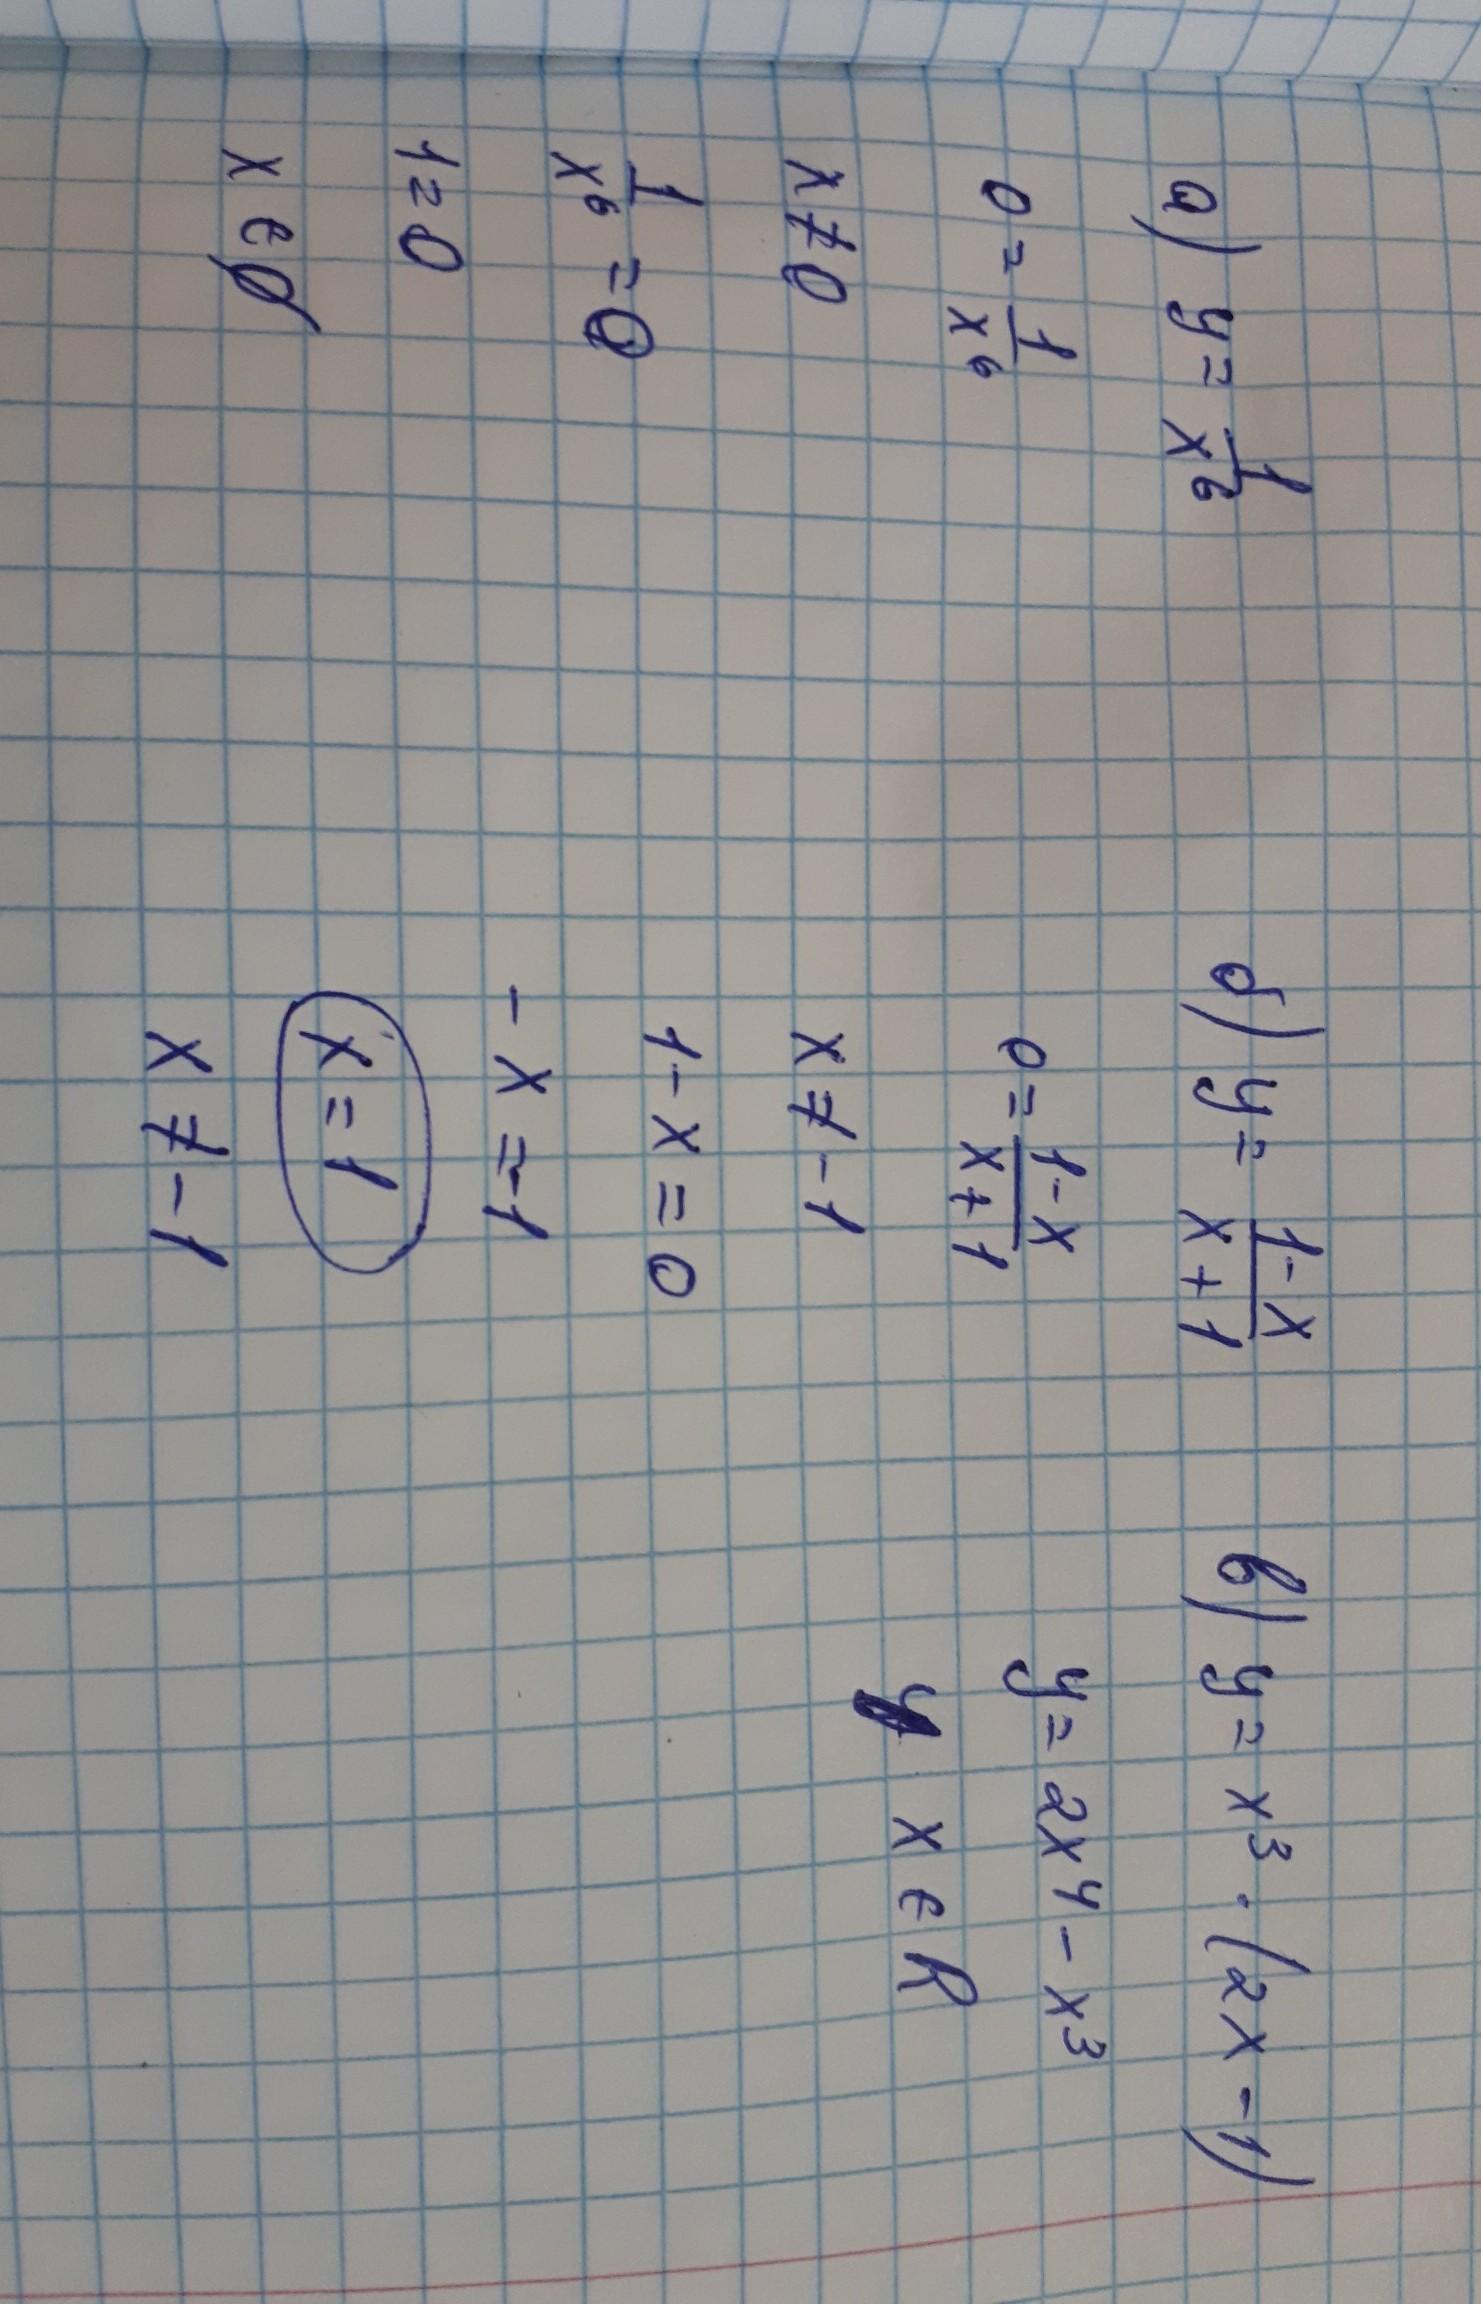 а) y = 1/x⁶
0 = 1/x⁶
x ≠ 0
1/x⁶ = 0
1 = 0
x ∈ ∅
б) y = (1-x)/(x+1)
0 = (1-x)/(x+1)
x ≠ -1
1 - x = 0
- x = -1
x = 1
x ≠ -1
в) y = x³ · (2x - 1)
y = 2x⁴ - x³
x ∈ R